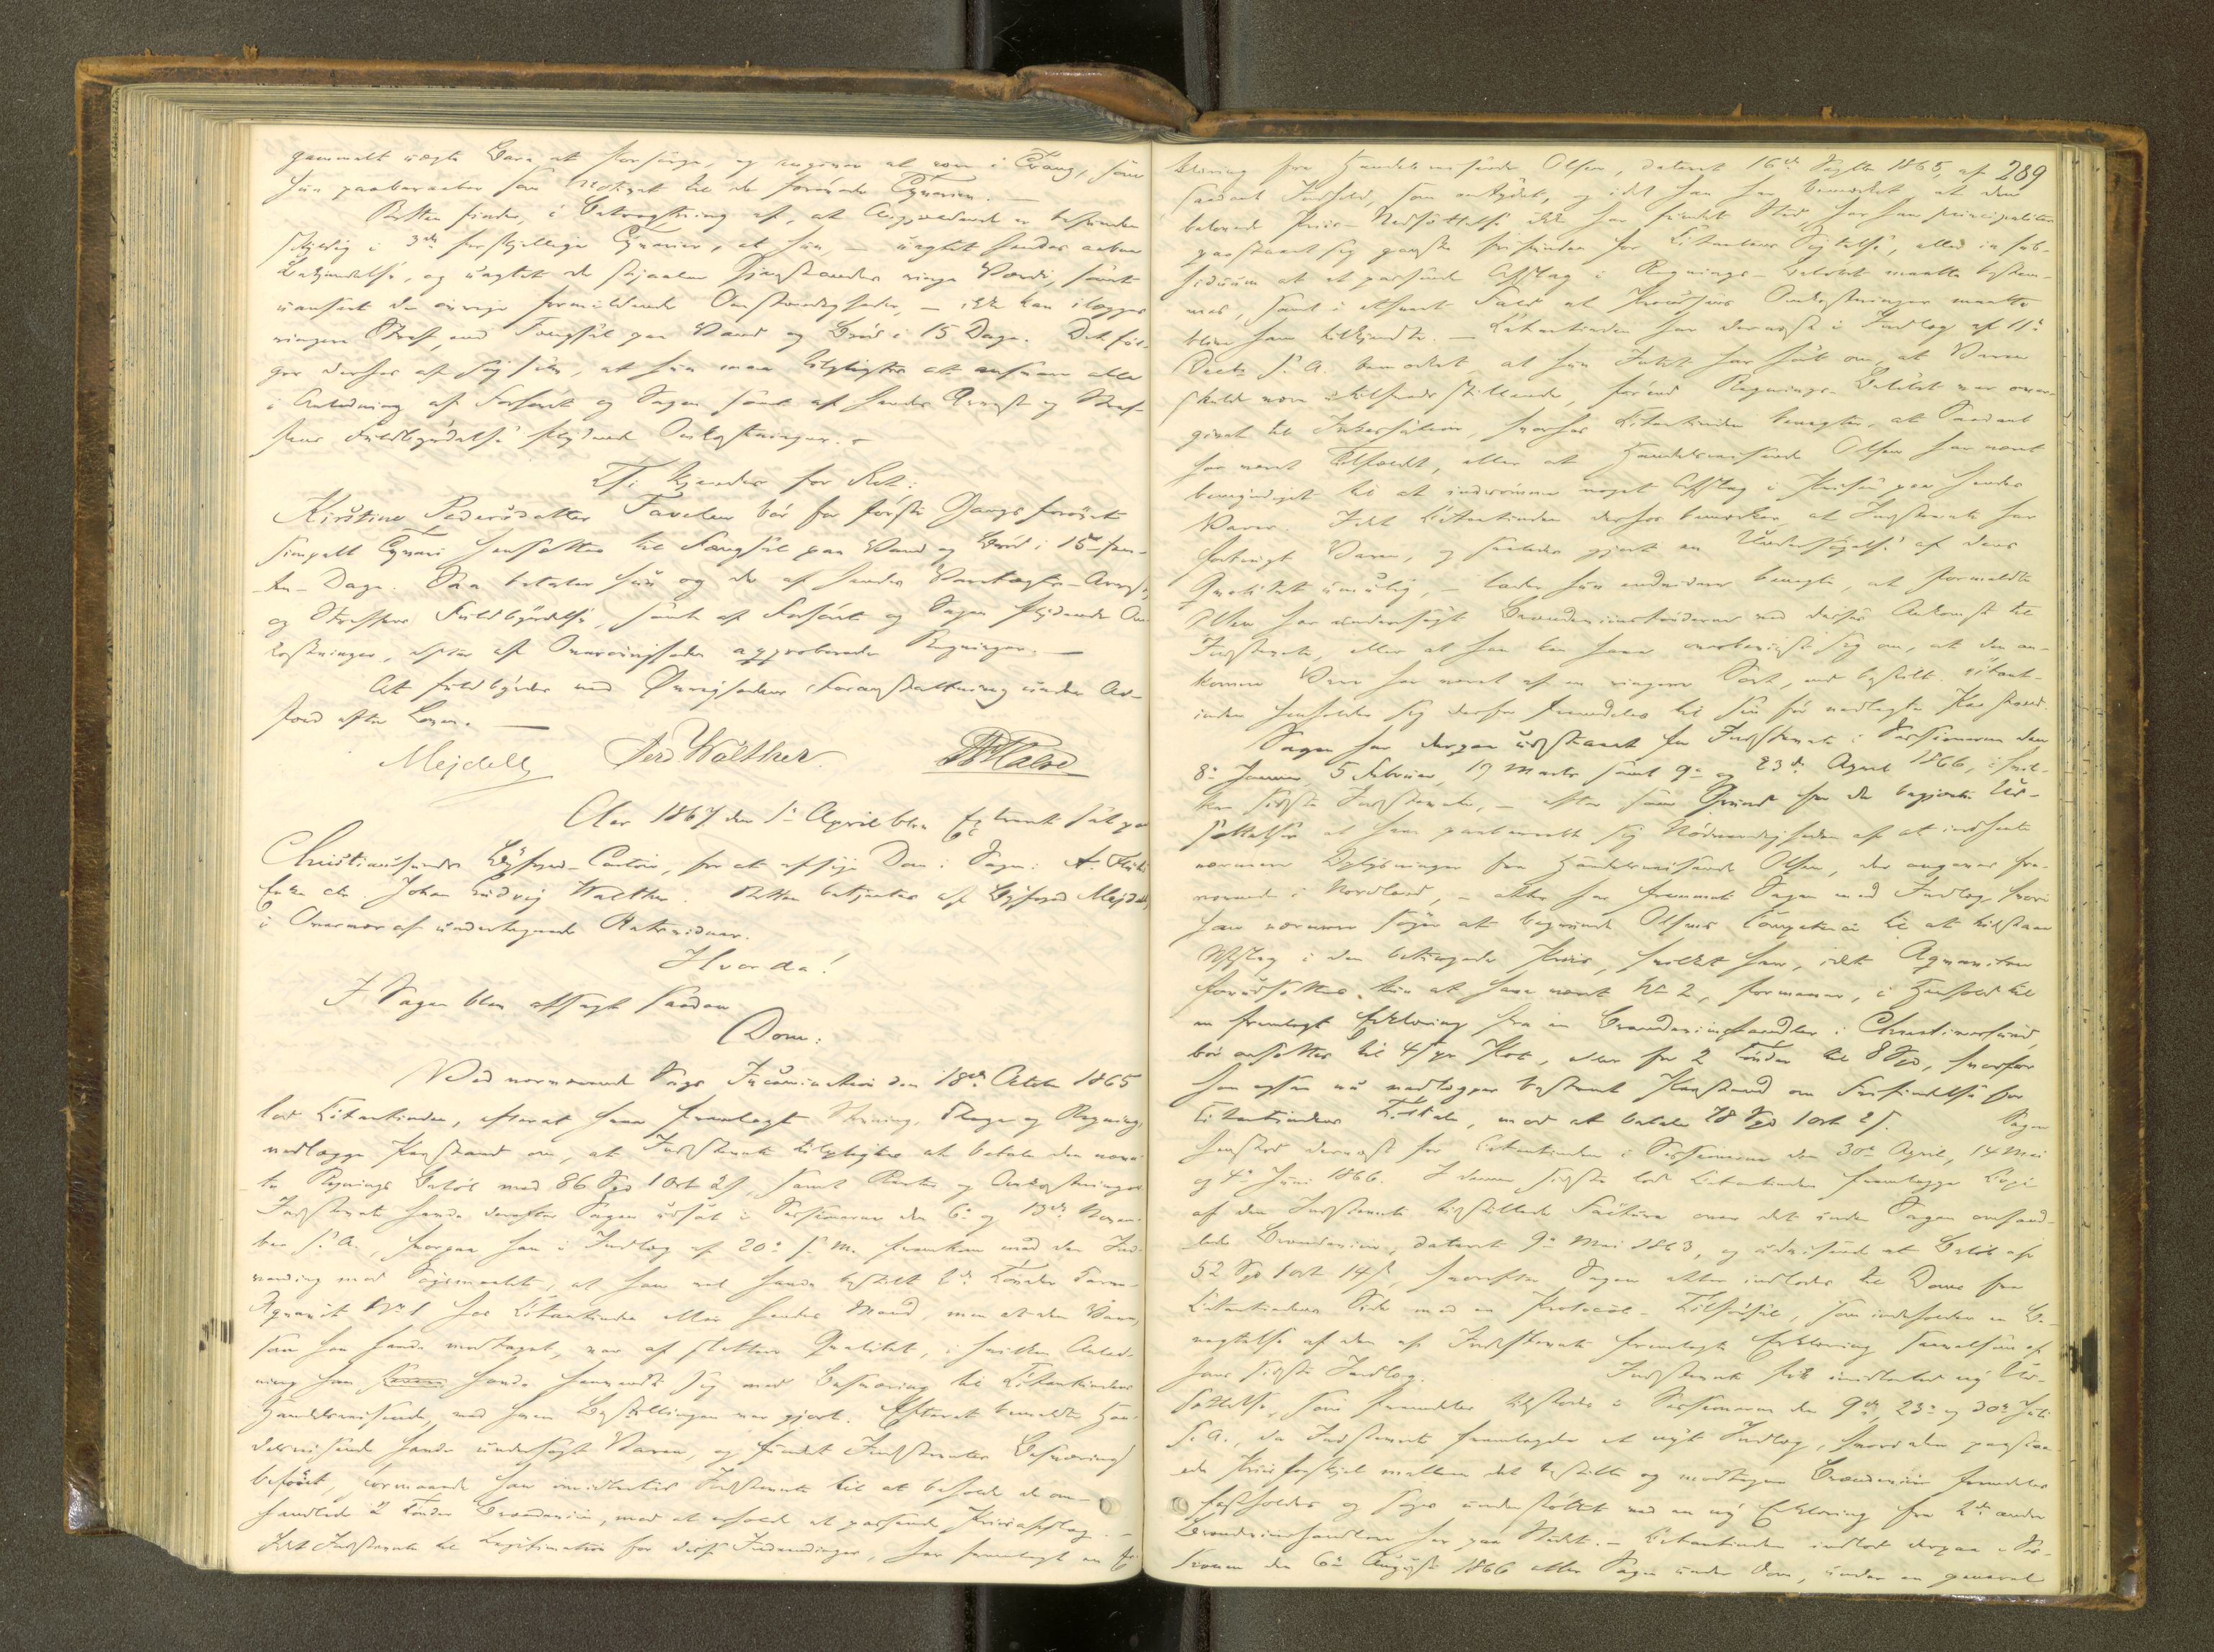 gammelt uægte Barn at forsørge, og angiver at være i Trang, som
hun paaberaaber som Motivet til de forøvede Tyverier. —
Retten finder, i Betragtning af, at Angjældende er befunden
skyldig i 3de forskjellige Tyverier, at hun, — uagtet hendes aabne
Bekjendelse, og uagtet de stjaalne Gjenstandes ringe Værdi, samt
uanseet de øvrige formildende Omstændigheder, — ikke kan ilægges
ringere Straf, end Fængsel paa Vand og Brød i 15 Dage. Det føl-
ger derhos af sig selv, at hun maa tilpligtes at udrede alle
i Anledning af Forhøret og Sagen samt af hendes Arrest og Straf-
fens Fuldbyrdelse flydende Omkostninger. —
Thi kjendes for Ret:
Kirstine Pedersdatter Tavelen bør for første Gang forøvet
simpelt Tyveri hensættes til Fængsel paa Vand og Brød i 15 fem-
ten Dage. Saa betaler hun og de af hendes Varetægts-Arrest,
og Straffens Fuldbyrdelse, samt af Forhøret og Sagen flydende Om-
kostninger, efter af Øvrigheden approberede Regninger. —
At fuldbyrdes ved Øvrighedens Foranstaltning under Ad-
færd efter Loven. —
Mejdell Ferd Walther.
Aar 1867 den 1ste April blev Extraret sat paa
Christianssunds Byfoged-Contoir, for at afsige Dom i Sagen: A.
Enke ctr. Johan Ludvig Walther. Retten betjentes af Byfoged Mejdell
i Overvær af undertegnede Retsvidner.
Hvorda!
I Sagen blev afsagt saadan
Dom:
Ved nærværende Sags Incamination den 18de Octbr 1865
lod Citantinden, efterat have fremlagt Stævning, Klage og Regning,
nedlægge Paastand om, at Indstevnte tilpligtes at betale den nævn-
te Regnings Beløb med 86 Spd 1 Ort 2 s, samt Renter og Omkostninger.
Indstevnte havde derefter Sagen udsat i Sessionerne den 6te og 13de Novem-
ber s. A., hvorpaa han i Indlæg af 20de s. M. fremkom med den Ind-
vending mod Søgsmaalet, at han vel havde bestilt 2de Tønder
Aqvavit No 1 hos Citantinden eller hendes Mand, men at den Vare,
som han havde modtaget, var af slettere Qvalitet, i hvilken Anled-
ning han havde henvendt sig med Besværing til Citantindens
Handelsreisende, ved hvem Bestillingen var gjort. Efterat bemeldte Han-
delsreisende havde undersøgt Varen, og fundet Indstevntes Besværing
beføiet, formaaede han imidlertid Indstevnte til at beholde de om-
handlede 2 Tønder Brændeviin, mod at erholde et passende Priisafslag. —
Idet Indstevnte til Legitimation for disse Indvendinger, har fremlagt en Er-
289
klæring fra Handelsreisende Olsen, dateret 16de Septbr 1865, af
saadant Indhold, som antydet, og idet han har bemærket, at den
belovede Priis-Nedsættelse ikke har fundet Sted har han principaliter
paastaaet sig ganske frifunden for Citantens Søgtelse, eller in sub-
sidium at et passende Afslag i Regnings-Beløbet maatte bestem-
mes, samt i ethvert Fald at Processens Omkostninger maatte
blive ham tilkjendte. — Citantinden har dernæst i Indlæg af 11te
Decbr s. A. bemærket at hun Intet har hørt om, at Varen
skulde være utilfredsstillende, førend Regnings-Beløbet var over-
givet til Inkassation, hvorhos Citantinden benegter, at Saadant
har været Tilfældet, eller at Handelsreisende Olsen har været
bemyndiget til at indrømme noget Afslag i Prisen paa hendes
Varer. Idet Citantinden derhos bemærker, at Indstevnte har
forbrugt Varen, og saaledes gjort en Undersøgelse af dens
Qvalitet umulig, — lader hun endvidere benegte, at formeldte
Olsen har undersøgt Brændeviinstønderne ved deres Ankomst til
Indstevnte, eller at han kan have overbeviist sig om, at den an-
komne Vare har været af en ringere Sort, end bestilt. Citant-
inden henholder sig derfor fremdeles til sin før nedlagte Paastand.
Sagen har derpaa udstaaet for Indstevnte i Sessionerne den
8de Januar, 5 Februar, 19 Marts samt 9de og 23de April 1866, i hvil-
ken sidste Indstevnte, — efter som Grund for de begjærte Ud-
sættelser at have paaberaabt sig Nødvendigheden af at indhente
nærmere Oplysninger fra Handelsreisende Olsen, der angaves fra-
værende i Nordland, — atter har fremmet Sagen med Indlæg, hvori
han nærmere søger at begrunde Olsens Competence til at tilstaae
Afslag i den betingede Priis, hvilket han, idet Aqvaviten
forudsættes kun at have været No 2, formener, i Henhold til
en fremlagt Erklæring fra en Brændeviinshandler i Christianssund,
bør ansættes til 4 s pr Pot, eller for 2 Tønder til 8 Spd, hvorfor
han ogsaa nu nedlægger bestemt Paastand om Frifindelse for
Citantindens Tiltale, mod at betale 78 Spd 1 Ort 2 s. Sagen
henstod dernæst for Citantinden i Sessionerne den 30te April, 14 Mai
og 4de Juni 1866. I denne sidste lod Citantinden fremlægge Kopi
af den Indstevnte tilstillede Factura over det under Sagen omhand-
lede Brændeviin, dateret 9de Mai 1863, og udvisende et Beløb af
52 Spd 1 Ort 14 s, hvorefter Sagen atter indlodes til Doms fra
Citantindens Side med en Protocol-Tilførsel, som indeholder en Be-
negtelse af den af Indstevnte fremlagte Erklæring saavelsom af
hans sidste Indlæg. Indstevnte fik imidlertid ny Ud-
sættelse, som fremdeles tilstodes i Sessionerne den 9de, 23de og 30te Juli
s. A., da Indstevnte fremlagde et nyt Indlæg, hvori den paastaa-
ede Priisforskjel mellem det bestilte og modtagne Brændeviin fremdeles
fastholdes og søges understøttet ved en ny Erklæring fra 2de andre
Brændeviinshandlere her paa Stedet. — Citantinden indlod derpaa i Ses-
sionen den 6te August 1866 atter Sagen under Dom, under en general